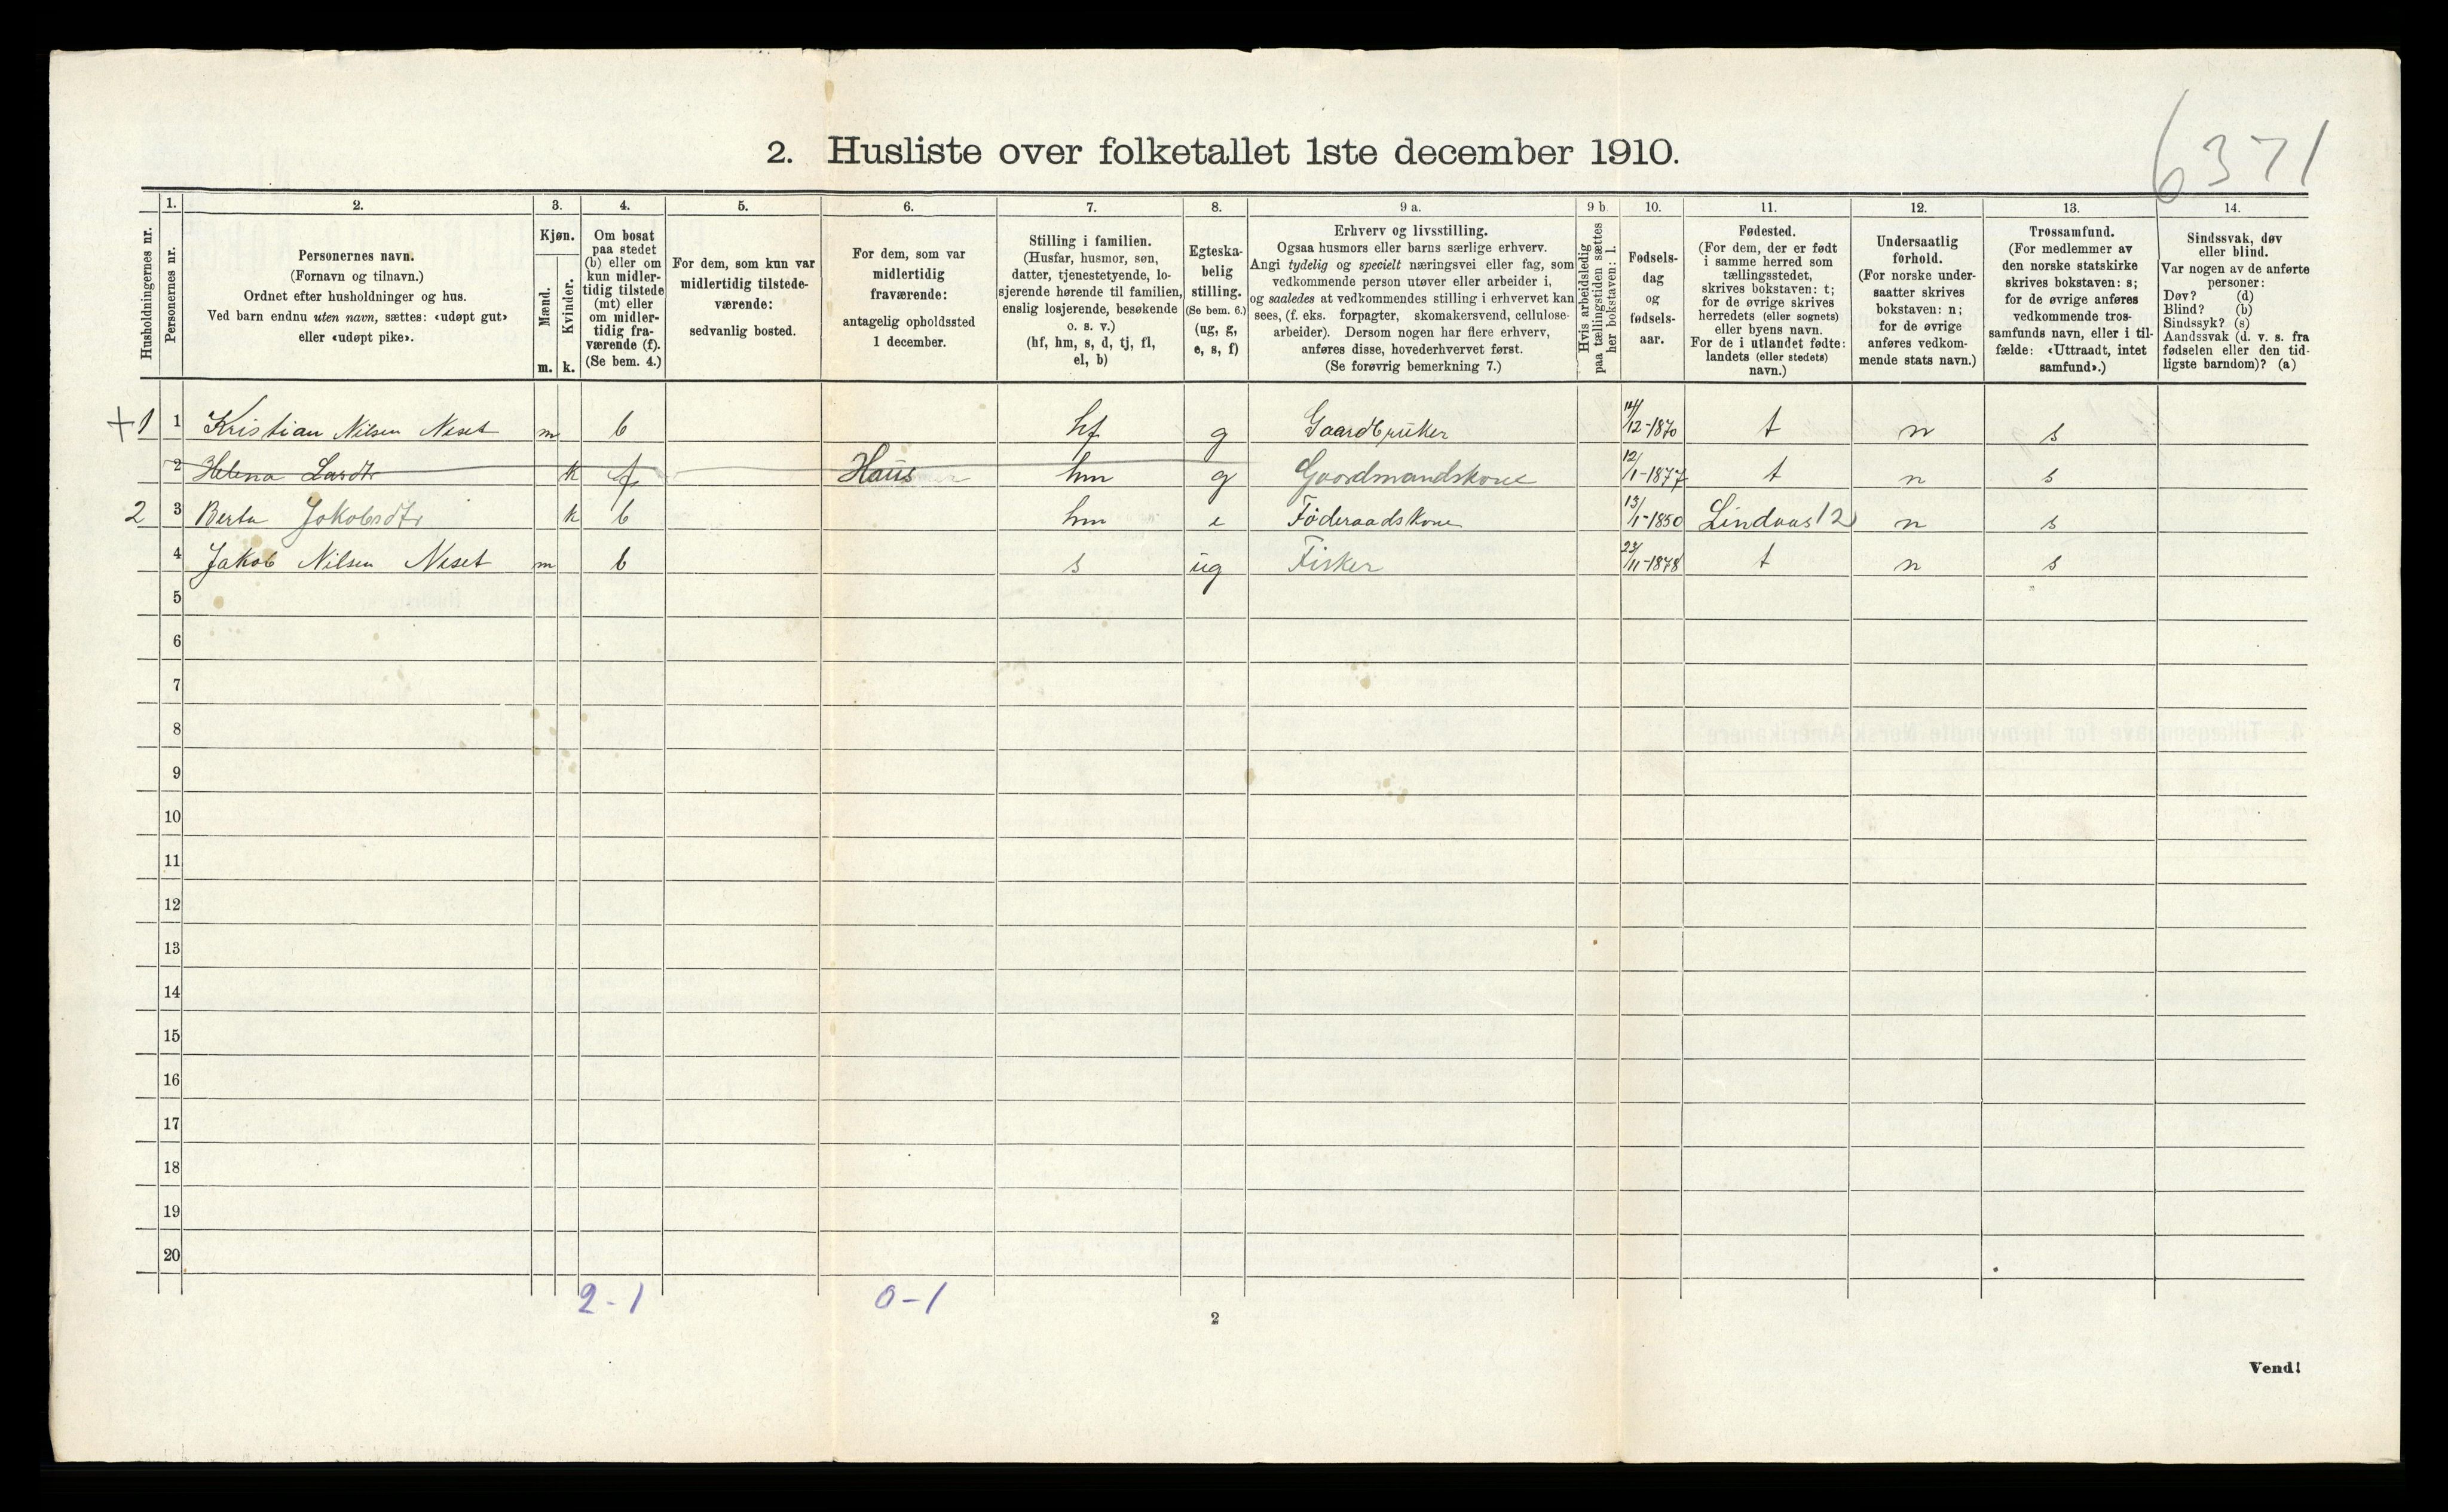 6371
2. Husliste over folketallet 1ste december 1910.
Husholdningernes nr.
1. Personernes nr.
2. Personernes navn.
(Fornavn og tilnavn.)
Ordnet efter husholdninger og hus.
Ved barn endnu uten navn, sættes: «udøpt gut»
eller «udøpt pike».
3. Kjøn.
Mænd. m.
Kvinder. k.
4. Om bosat
paa stedet
(b) eller om
kun midler-
tidig tilstede
(mt) eller
om midler-
tidig fra-
værende (f).
(Se bem. 4.)
5. For dem, som kun var
midlertidig tilstede-
værende:
sedvanlig bosted.
6. For dem, som var
midlertidig
fraværende:
antagelig opholdssted
1 december.
7. Stilling i familien.
(Husfar, husmor, søn,
datter, tjenestetyende, lo-
sjerende hørende til familien,
enslig losjerende, besøkende
o. s. v.)
(hf, hm, s, d, tj, fl,
el, b)
8. Egteska-
belig
stilling.
(Se bem. 6.)
(ug, g,
e, s, f)
9 a. Erhverv og livsstilling.
Ogsaa husmors eller barns særlige erhverv.
Angi tydelig og specielt næringsvei eller fag, som
vedkommende person utøver eller arbeider i,
og saaledes at vedkommendes stilling i erhvervet kan
sees, (f. eks. forpagter, skomakersvend, cellulose-
arbeider). Dersom nogen har flere erhverv,
anføres disse, hovederhvervet først.
(Se forøvrig bemerkning 7.)
9 b. Hvis arbeidsledig
paa tællingstiden sættes
her bokstaven: l.
10. Fødsels-
dag
og
fødsels-
aar.
11. Fødested.
(For dem, der er født
i samme herred som
tællingsstedet,
skrives bokstaven: t;
for de øvrige skrives
herredets (eller sognets)
eller byens navn.
For de i utlandet fødte:
landets (eller stedets)
navn.)
12. Undersaatlig
forhold.
(For norske under-
saatter skrives
bokstaven: n;
for de øvrige
anføres vedkom-
mende stats navn.)
13. Trossamfund.
(For medlemmer av
den norske statskirke
skrives bokstaven: s;
for de øvrige anføres
vedkommende tros-
samfunds navn, eller i til-
fælde: «Uttraadt, intet
samfund».)
14. Sindssvak, døv
eller blind.
Var nogen av de anførte
personer:
Døv? (d)
Blind? (b)
Sindssyk? (s)
Aandssvak (d. v. s. fra
fødselen eller den tid-
ligste barndom)? (a)
+1 1 Kristian Nilsen Neset m b hf g Gaardbruker 14/12-1870 t n s
2 Helena Larsdtr k f Haus hm g Gaardmandskone 12/1-1877 t n s
2 3 Berta Jakobsdtr k b hm e Föderaadskone 13/1-1850 Lindaas 12 n s
4 Jakob Nilsen Neset m b s ug Fisker 23/11-1878 t n s
5
6
7
8
9
10
11
12
13
14
15
16
17
18
19
20
2-1 0-1
2
Vend!